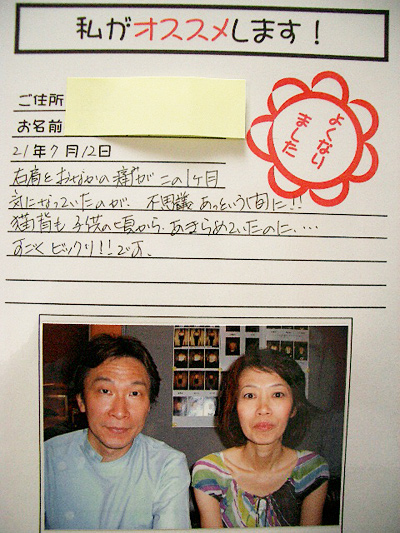 私がオススメします！
ご住所
お名前
よくなりました
21年7月12日
右肩とおなかの痛みがこの1ヶ月
気になっていたのが、不思議 あっという間に!!
猫背も子供の頃から、あきらめていたのに、…
すごくビックリ!!です、